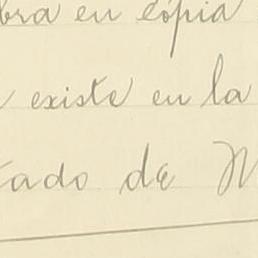 bra en cópia
existe en la
tado de M